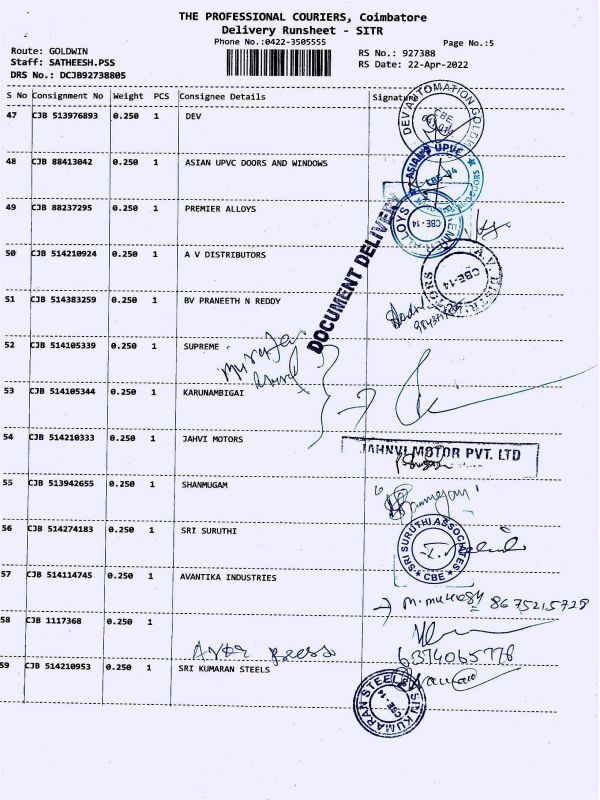 THE PROFESSIONAL COURIERS, Coimbatore
Delivery Runsheet - SITR
Phone No.:0422-3505555
Page No.:5
Route: GOLDWIN
RS No.: 927388
Staff: SATHEESH.PSS
RS Date: 22-Apr-2022
DRS No.: DCJB92738805
S No Consignment No Weight PCS Consignee Details Signature
47 CJB 513976893 0.250 1 DEV
DEV AUTOMATION
CBE
48 CJB 88413042 0.250 1 ASIAN UPVC DOORS AND WINDOWS
ASIAN UPVC DOORS
CBE-14
49 CJB 88237295 0.250 1 PREMIER ALLOYS
ALLOYS
CBE-14
DOCUMENT DELIVERY
50 CJB 514210924 0.250 1 A V DISTRIBUTORS
A.V. DISTRIBUTORS
CBE-14
51 CJB 514383259 0.250 1 BV PRANEETH N REDDY
52 CJB 514105339 0.250 1 SUPREME
53 CJB 514105344 0.250 1 KARUNAMBIGAI
54 CJB 514210333 0.250 1 JAHVI MOTORS
JAHNVI MOTOR PVT. LTD
55 CJB 513942655 0.250 1 SHANMUGAM
56 CJB 514274183 0.250 1 SRI SURUTHI
SRI SURUTHI ASSOCIATES
CBE
57 CJB 514114745 0.250 1 AVANTIKA INDUSTRIES
8675215728
58 CJB 1117368 0.250 1
6374065778
59 CJB 514210953 0.250 1 SRI KUMARAN STEELS
SRI KUMARAN STEELS
CBE-14